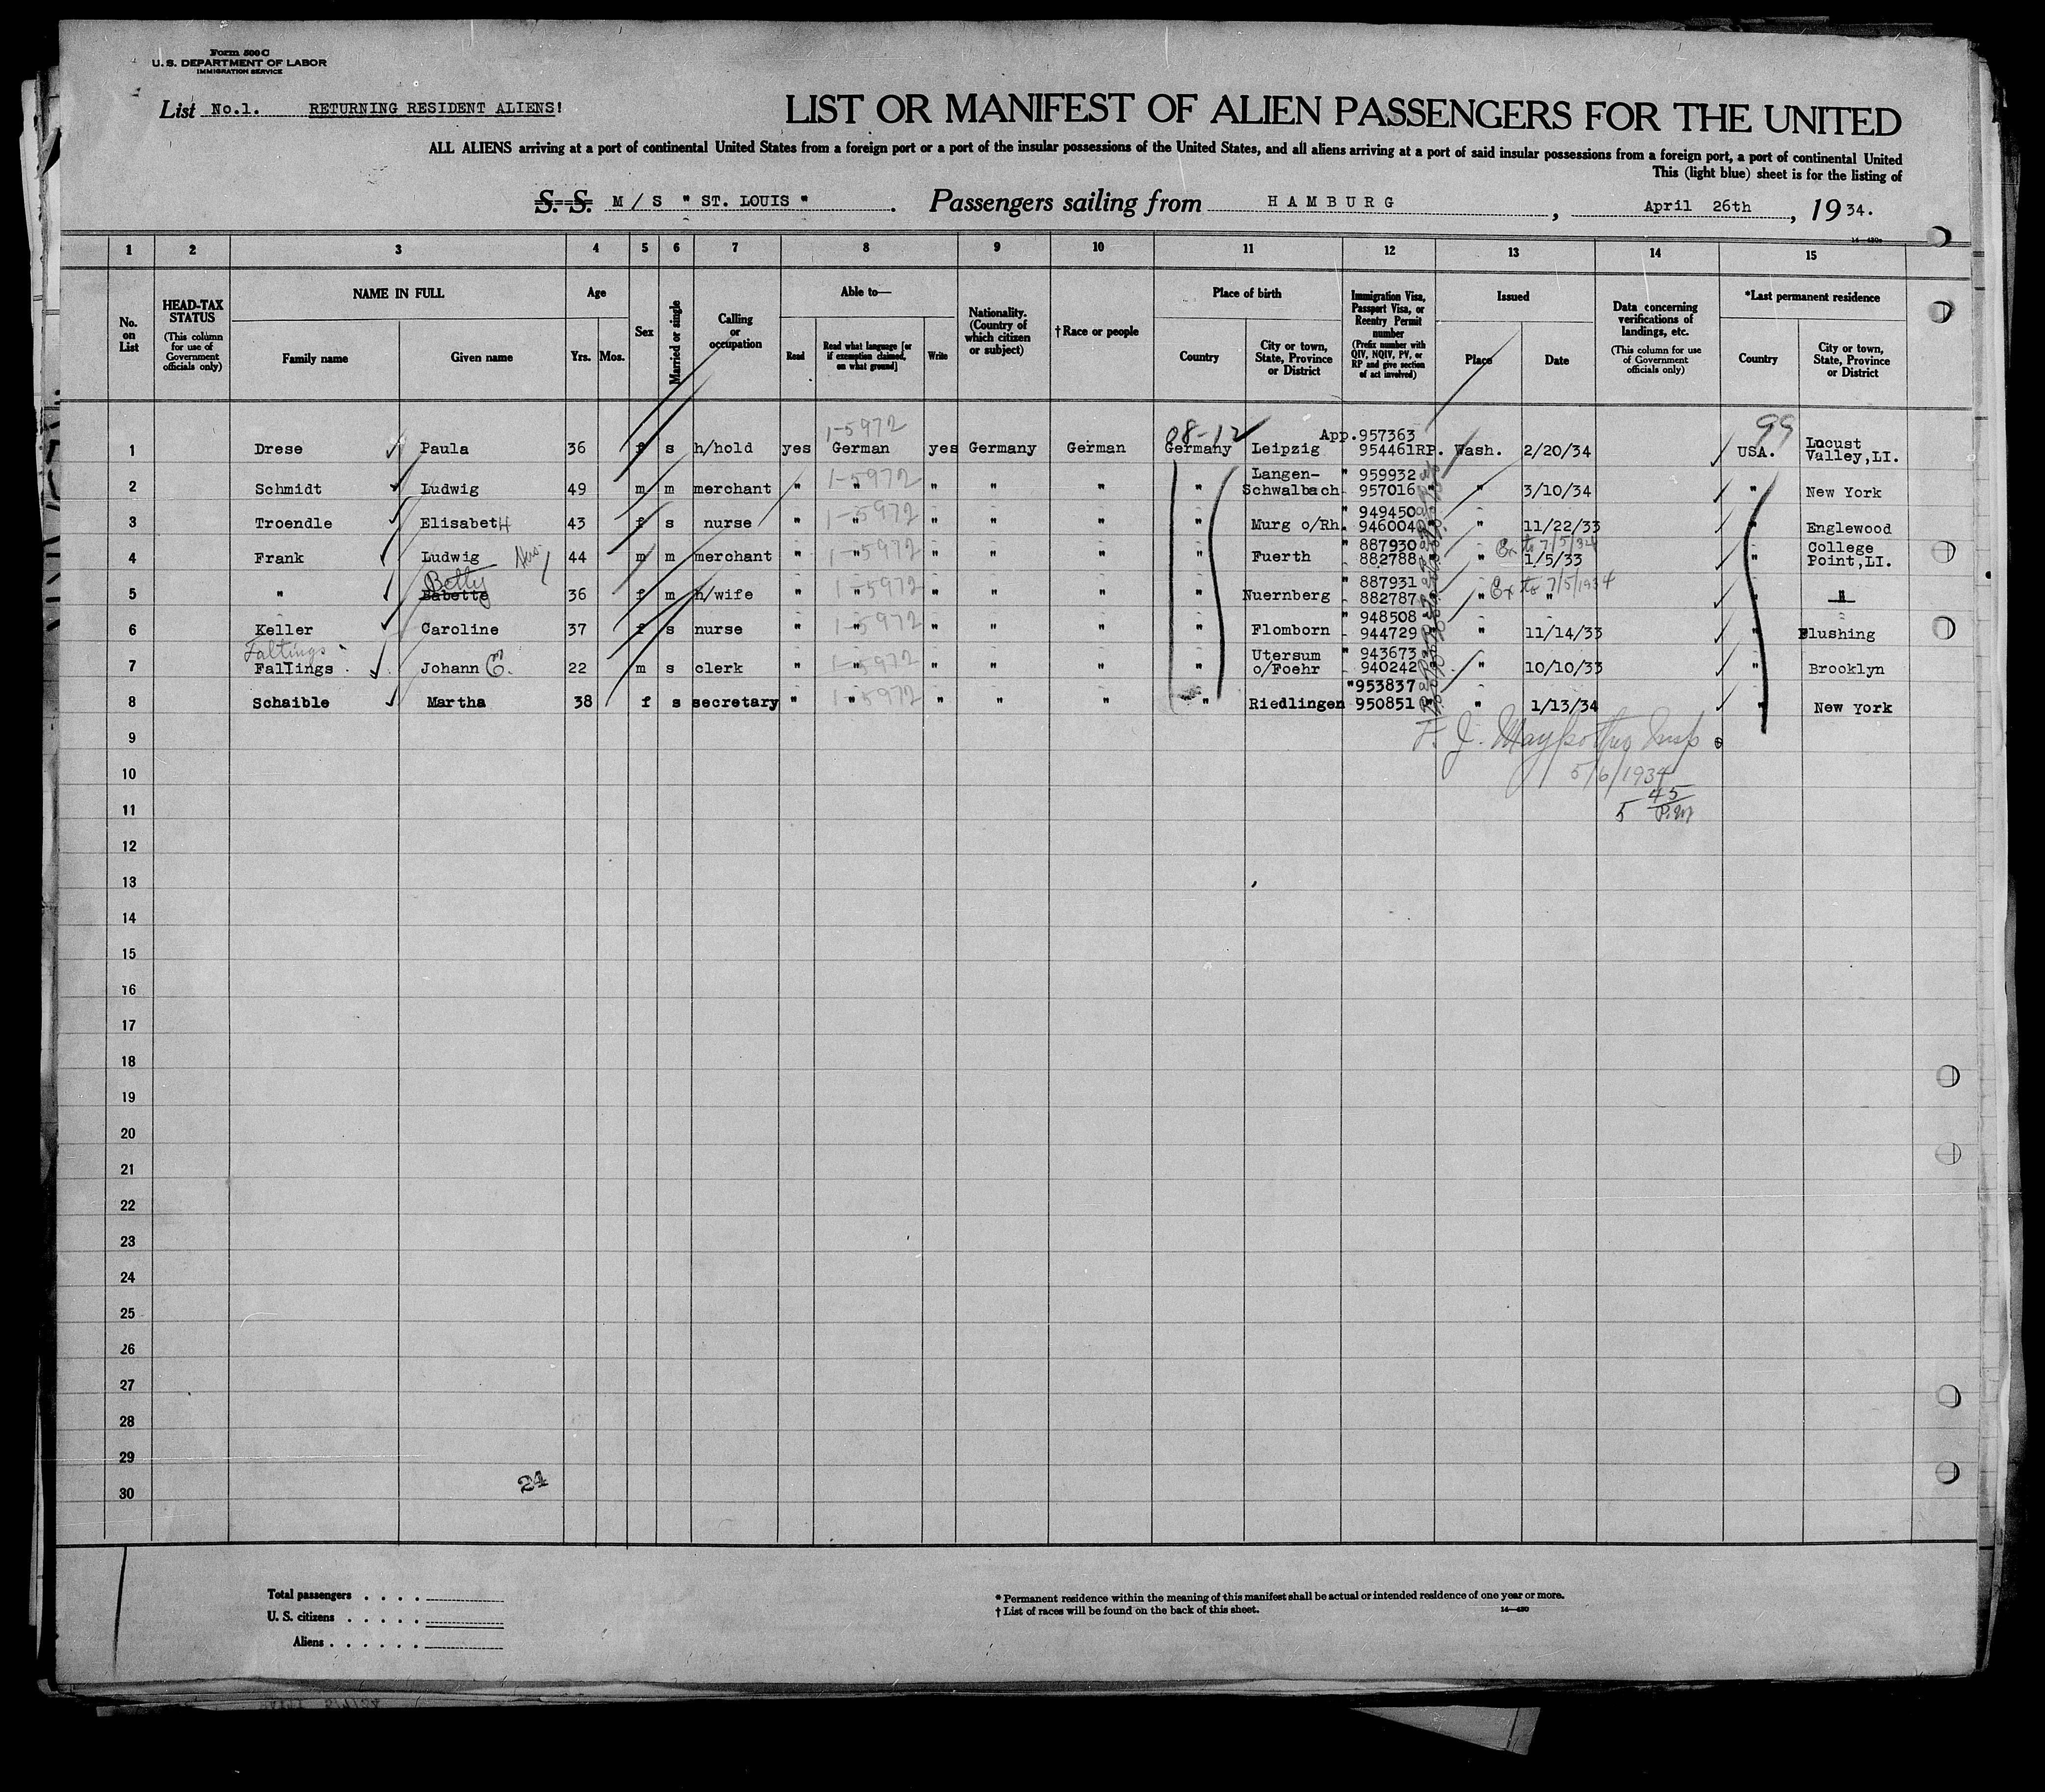 Form 500 C
U. S. DEPARTMENT OF LABOR
IMMIGRATION SERVICE
List No.1. RETURNING RESIDENT ALIENS!
LIST OR MANIFEST OF ALIEN PASSENGERS FOR THE UNITED
ALL ALIENS arriving at a port of continental United States from a foreign port or a port of the insular possessions of the United States, and all aliens arriving at a port of said insular possessions from a foreign port, a port of continental United
This (light blue) sheet is for the listing of
S. S. M/S " ST. LOUIS " . Passengers sailing from HAMBURG , April 26th , 1934.
1 2 3 4 5 6 7 8 9 10 11 12 13 14 15
No. on List
HEAD-TAX STATUS
(This column for use of Government officials only)
NAME IN FULL
Family name Given name
Age
Yrs. Mos.
Sex
Married or single
Calling or occupation
Able to—
Read Read what language [or if exemption claimed, on what ground] Write
Nationality. (Country of which citizen or subject)
† Race or people
Place of birth
Country City or town, State, Province or District
Immigration Visa, Passport Visa, or Reentry Permit number
(Prefix number with QIV, NQIV, PV, or RP and give section of act involved)
Issued
Place Date
Data concerning verifications of landings, etc.
(This column for use of Government officials only)
*Last permanent residence
Country City or town, State, Province or District
1-5972 08-12 App.957363 99 Locust
1 Drese Paula 36 f s h/hold yes German yes Germany German Germany Leipzig 954461RP. Wash. 2/20/34 USA. Valley,LI.
1-5972 Langen- " 959932
2 Schmidt Ludwig 49 m m merchant " " " " " " Schwalbach 957016 " " 3/10/34 " New York
1-5972 " 949450
3 Troendle ElisabetH 43 f s nurse " " " " " " Murg o/Rh. 946004 " " 11/22/33 " Englewood
1-5972 " 887930 Ex to 7/5/34 College
4 Frank Ludwig 44 m m merchant " " " " " " Fuerth 882788 " " 1/5/33 " Point,LI.
Betty 1-5972 " 887931 Ex to 7/5/1934
5 " Babette 36 f m h/wife " " " " " " Nuernberg 882787 " " " " "
1-5972 " 948508
6 Keller Caroline 37 f s nurse " " " " " " Flomborn 944729 " " 11/14/33 " Flushing
Faltings 1-5972 Utersum " 943673
7 Fallings Johann C. 22 m s clerk " " " " " " o/Foehr 940242 " " 10/10/33 " Brooklyn
1-5972 "953837
8 Schaible Martha 38 f s secretary " " " " " " Riedlingen 950851 " " 1/13/34 " New York
9
5/6/1934
10
5 45 P.M
11
12
13
14
15
16
17
18
19
20
21
22
23
24
25
26
27
28
29
24
30
Total passengers
U. S. citizens
Aliens
* Permanent residence within the meaning of this manifest shall be actual or intended residence of one year or more.
† List of races will be found on the back of this sheet.
14—430